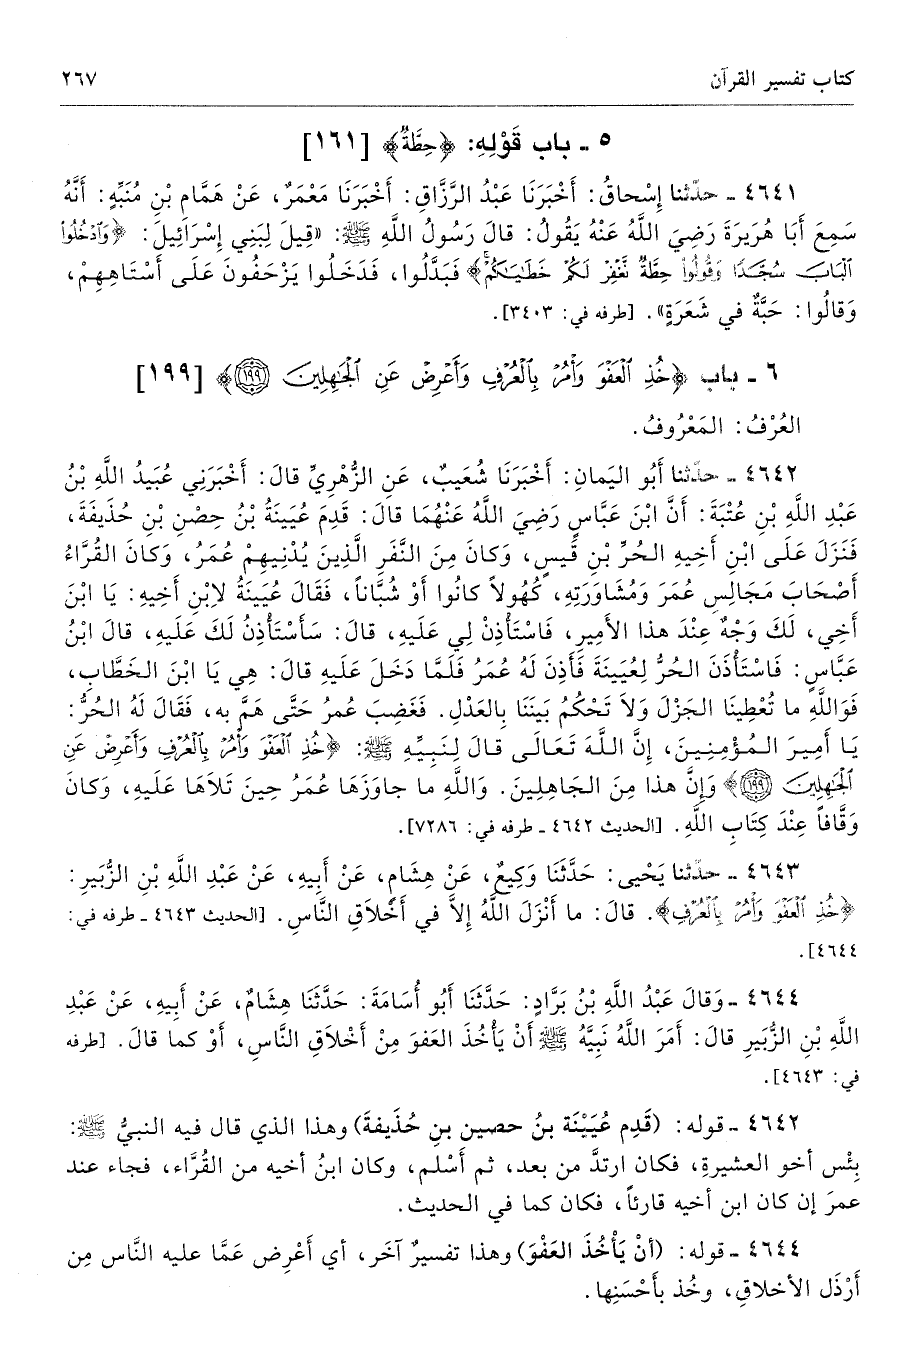 كتاب تفسير القرآن
٢٦٧
٥ ـ باب قَوْلِهِ: ﴿حِطَّةٌ﴾ [١٦١]
٤٦٤١ ـ حدّثنا إِسْحاقُ: أَخْبَرَنَا عَبْدُ الرَّزَّاقِ: أَخْبَرَنَا مَعْمَرٌ، عَنْ هَمَّامِ بْنِ مُنَبِّهٍ: أَنَّهُ
سَمِعَ أَبَا هُرَيرَةَ رَضِيَ اللَّهُ عَنْهُ يَقُولُ: قالَ رَسُولُ اللَّهِ ﷺ: «قِيلَ لِبَنِي إِسْرَائِيلَ: ﴿وَٱدْخُلُوا۟
ٱلْبَابَ سُجَّدًا وَقُولُوا۟ حِطَّةٌ نَّغْفِرْ لَكُمْ خَطَٰيَٰكُمْ﴾ فَبَدَّلُوا، فَدَخَلُوا يَزْحَفُونَ عَلَى أَسْتَاهِهِمْ،
وَقالُوا: حَبَّةٌ في شَعَرَةٍ». [طرفه في: ٣٤٠٣].
٦ ـ باب ﴿خُذِ ٱلْعَفْوَ وَأْمُرْ بِٱلْعُرْفِ وَأَعْرِضْ عَنِ ٱلْجَٰهِلِينَ ﴿١٩٩﴾﴾ [١٩٩]
العُرْفُ: المَعْرُوفُ.
٤٦٤٢ ـ حدّثنا أَبُو اليَمانِ: أَخْبَرَنَا شُعَيبٌ، عَنِ الزُّهْرِيِّ قالَ: أَخْبَرَنِي عُبَيدُ اللَّهِ بْنُ
عَبْدِ اللَّهِ بْنِ عُتْبَةَ: أَنَّ ابْنَ عَبَّاسٍ رَضِيَ اللَّهُ عَنْهُمَا قالَ: قَدِمَ عُيَينَةُ بْنُ حِصْنِ بْنِ حُذَيفَةَ،
فَنَزَلَ عَلَى ابْنِ أَخِيهِ الحُرِّ بْنِ قَيسٍ، وَكانَ مِنَ النَّفَرِ الَّذِينَ يُدْنِيهِمْ عُمَرُ، وَكانَ القُرَّاءُ
أَصْحَابَ مَجَالِسِ عُمَرَ وَمُشَاوَرَتِهِ، كُهُولاً كانُوا أَوْ شُبَّاناً، فَقَالَ عُيَينَةُ لاِبْنِ أَخِيهِ: يَا ابْنَ
أَخِي، لَكَ وَجْهٌ عِنْدَ هذا الأَمِيرِ، فَاسْتَأْذِنْ لِي عَلَيهِ، قالَ: سَأَسْتَأْذِنُ لَكَ عَلَيهِ، قالَ ابْنُ
عَبَّاسٍ: فَاسْتَأْذَنَ الحُرُّ لِعُيَينَةَ فَأَذِنَ لَهُ عُمَرُ فَلَمَّا دَخَلَ عَلَيهِ قالَ: هِي يَا ابْنَ الخَطَّابِ،
فَوَاللَّهِ ما تُعْطِينَا الجَزْلَ وَلاَ تَحْكُمُ بَينَنَا بِالعَدْلِ. فَغَضِبَ عُمَرُ حَتَّى هَمَّ به، فَقَالَ لَهُ الحُرُّ:
يَا أَمِيرَ المُؤْمِنِينَ، إِنَّ اللَّهَ تَعَالَى قالَ لِنَبِيِّهِ ﷺ: ﴿خُذِ ٱلْعَفْوَ وَأْمُرْ بِٱلْعُرْفِ وَأَعْرِضْ عَنِ
ٱلْجَٰهِلِينَ ﴿١٩٩﴾﴾ وَإِنَّ هذا مِنَ الجَاهِلِينَ. وَاللَّهِ ما جاوَزَهَا عُمَرُ حِينَ تَلاَهَا عَلَيهِ، وَكانَ
وَقَّافاً عِنْدَ كِتَابِ اللَّهِ. [الحديث ٤٦٤٢ ـ طرفه في: ٧٢٨٦].
٤٦٤٣ ـ حدّثنا يَحْيى: حَدَّثَنَا وَكِيعٌ، عَنْ هِشَامٍ، عَنْ أَبِيهِ، عَنْ عَبْدِ اللَّهِ بْنِ الزُّبَيرِ:
﴿خُذِ ٱلْعَفْوَ وَأْمُرْ بِٱلْعُرْفِ﴾. قالَ: ما أَنْزَلَ اللَّهُ إِلاَّ في أَخْلاَقِ النَّاسِ. [الحديث ٤٦٤٣ ـ طرفه في:
٤٦٤٤].
٤٦٤٤ ـ وَقالَ عَبْدُ اللَّهِ بْنُ بَرَّادٍ: حَدَّثَنَا أَبُو أُسَامَةَ: حَدَّثَنَا هِشَامٌ، عَنْ أَبِيهِ، عَنْ عَبْدِ
اللَّهِ بْنِ الزُّبَيرِ قالَ: أَمَرَ اللَّهُ نَبِيَّهُ ﷺ أَنْ يَأْخُذَ العَفوَ مِنْ أَخْلاَقِ النَّاسِ، أَوْ كما قالَ. [طرفه
في: ٤٦٤٣].
٤٦٤٢ ـ قوله: (قَدِم عُيَيْنَة بنُ حصين بنِ حُذَيفةَ) وهذا الذي قال فيه النبيُّ ﷺ:
بِئْس أخو العشيرةِ، فكان ارتدَّ من بعد، ثم أَسْلم، وكان ابنُ أخيه من القُرَّاء، فجاء عند
عمرَ إن كان ابن أخيه قارئاً، فكان كما في الحديث.
٤٦٤٤ ـ قوله: (أنْ يَأْخُذَ العَفْوَ) وهذا تفسيرٌ آخَر، أي أَعْرِض عَمَّا عليه النَّاس مِن
أَرْذَل الأخلاقِ، وخُذ بأَحْسَنِها.